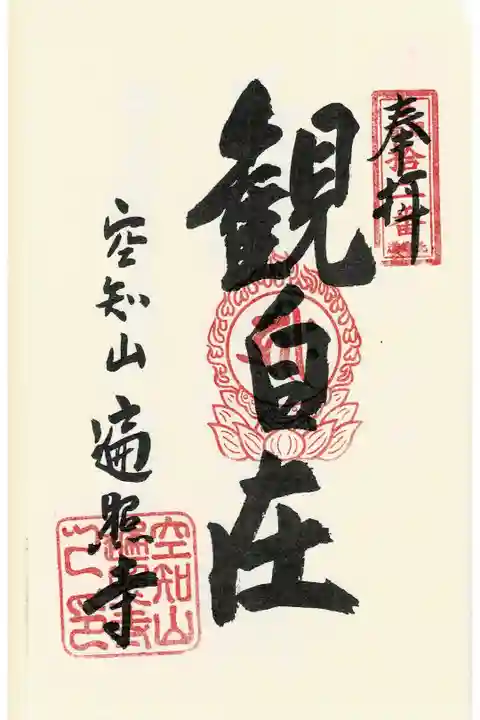 奉拝
観自在
空知山 遍照寺
空知山